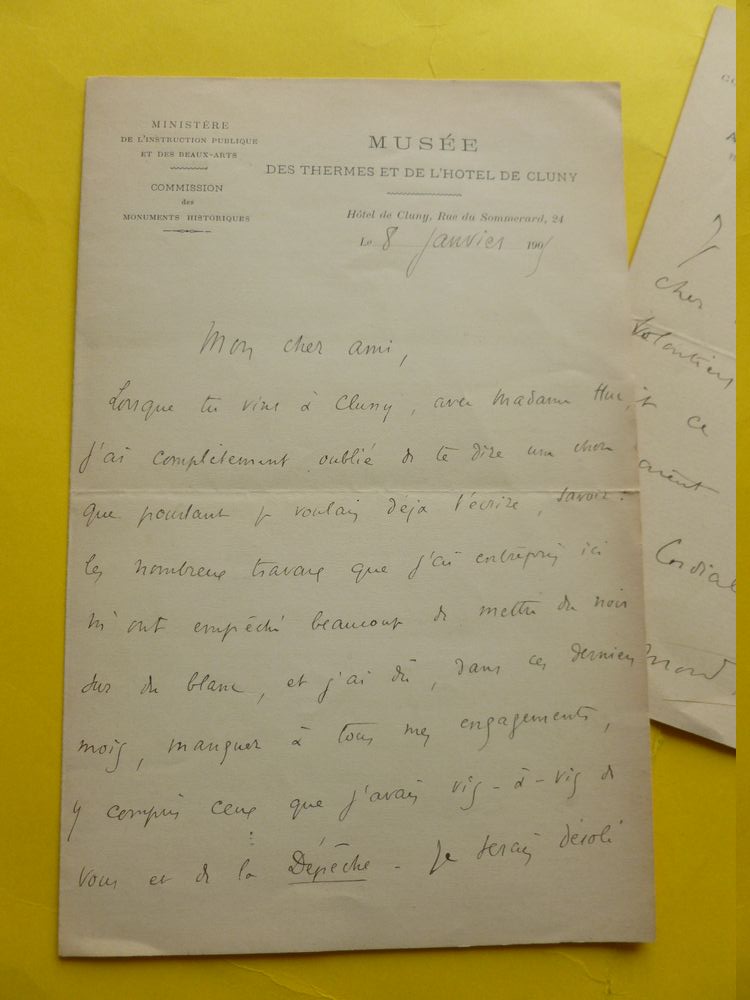 MINISTÈRE
DE L'INSTRUCTION PUBLIQUE
ET DES BEAUX-ARTS
COMMISSION
des
MONUMENTS HISTORIQUES
MUSÉE
DES THERMES ET DE L'HOTEL DE CLUNY
Hôtel de Cluny, Rue du Sommerard, 24
Le 8 Janvier 190
Mon cher ami,
Lorsque tu vins à Cluny, avec Madame Huc,
j'ai complètement oublié de te dire une chose
que pourtant je voulais déjà t'écrire, savoir :
les nombreux travaux que j'ai entrepris ici
m'ont empêché beaucoup de mettre du noir
sur du blanc, et j'ai dû, dans ces derniers
mois, manquer à tous mes engagements,
y compris ceux que j'avais vis-à-vis de
vous et de la Dépêche - Je serais désolé
cher
Volontiers
ce
Cordial